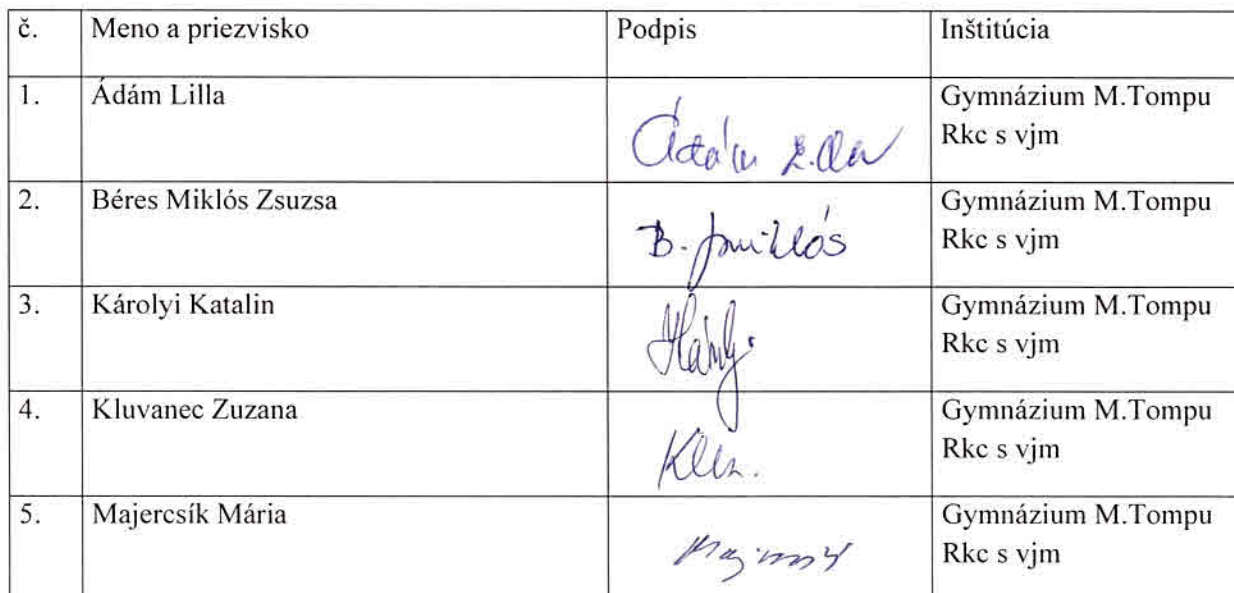 č. Meno a priezvisko Podpis Inštitúcia
1. Ádám Lilla Gymnázium M.Tompu
Rkc s vjm
Ádám Lilla
2. Béres Miklós Zsuzsa Gymnázium M.Tompu
Rkc s vjm
B.
3. Károlyi Katalin Gymnázium M.Tompu
Rkc s vjm
4. Kluvanec Zuzana Gymnázium M.Tompu
Rkc s vjm
5. Majercsík Mária Gymnázium M.Tompu
Rkc s vjm